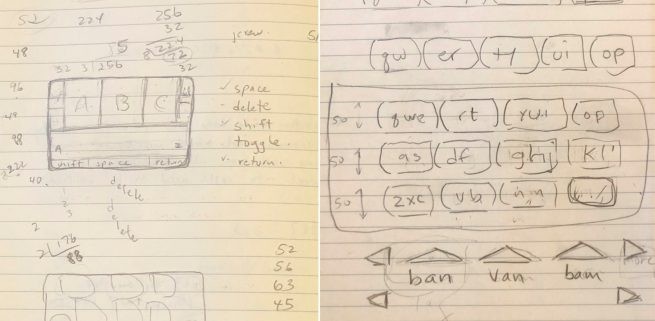 52 224 256
32
48 5 224
8 72
32 3 256 32
96
A B C
48
A
88 shift space return
222
40
1
2
3
delete
delete
2
2 176
88
✓ space
- delete
✓ shift
toggle
✓ return.
52
56
63
45
qw er ty ui op
50 qwe rt yui op
50 as df ghj kl'
50 zxc vb nm
ban van bam more